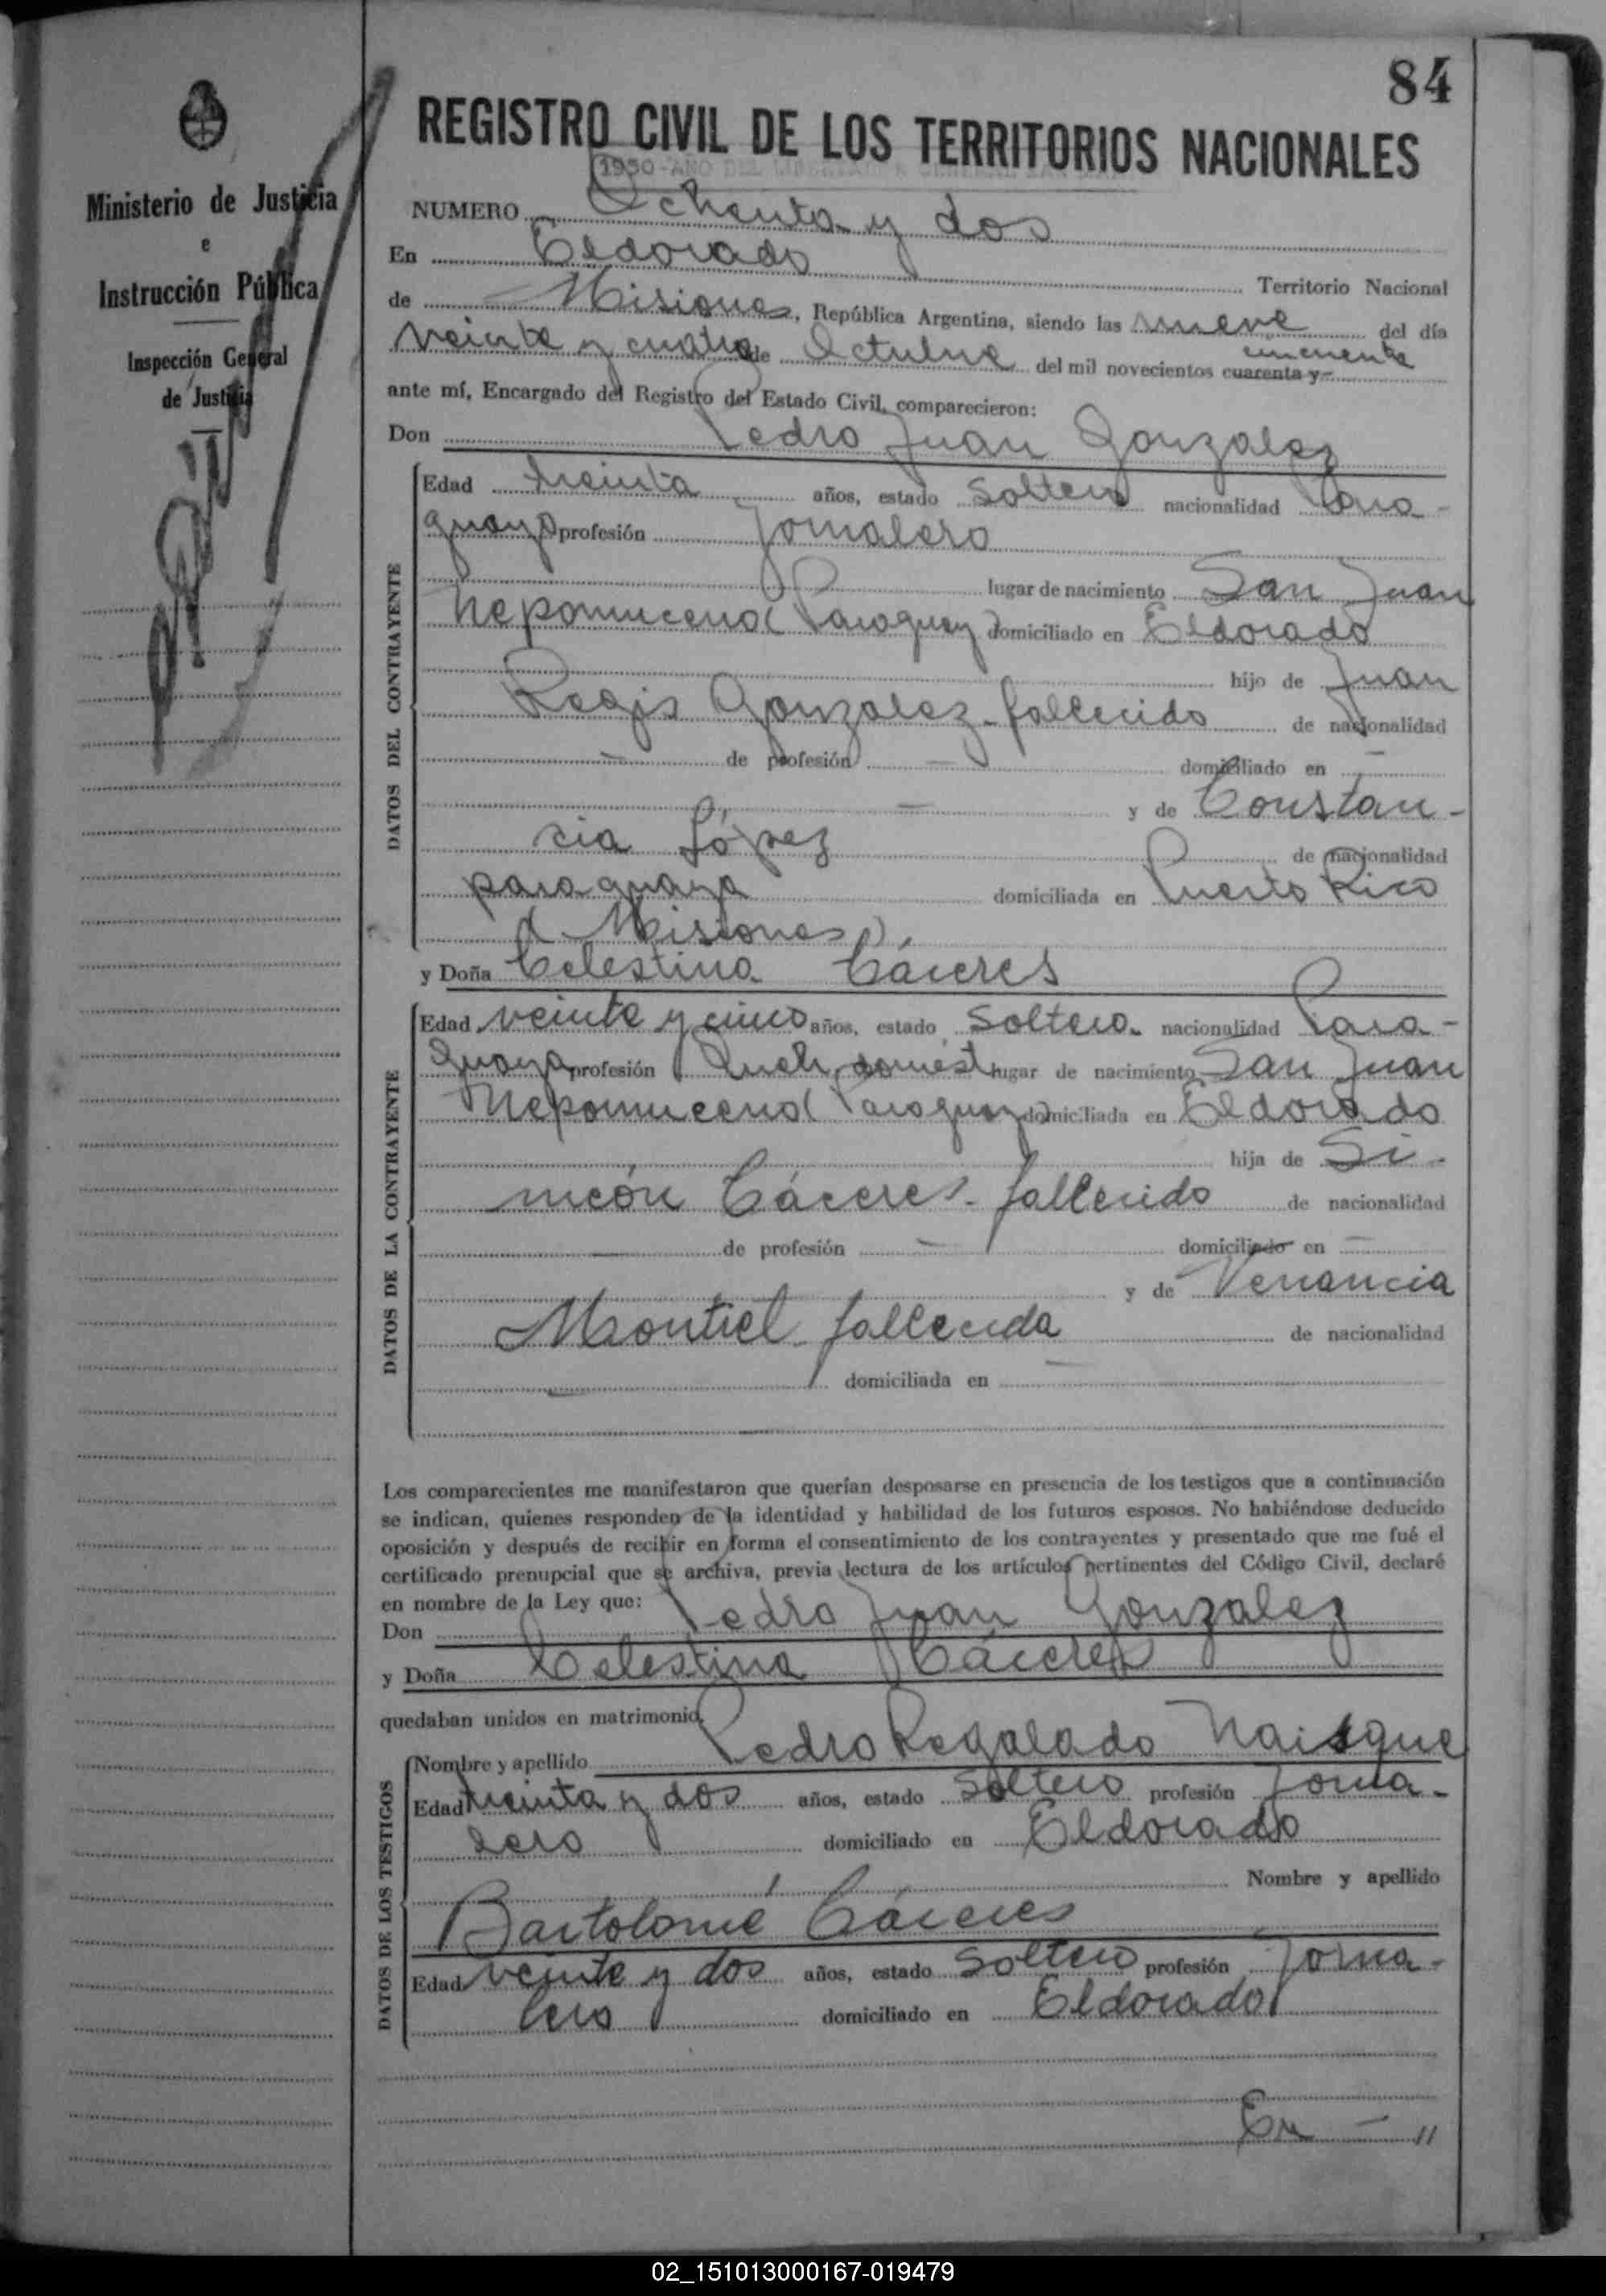 84
Ministerio de Justicia
e
Instrucción Pública
Inspección General
de Justicia
REGISTRO CIVIL DE LOS TERRITORIOS NACIONALES
1950-AÑO DEL LIBERTADOR GENERAL
NUMERO Ochenta y dos
En Eldorado Territorio Nacional
de Misiones, República Argentina, siendo las nueve del día
veinte y cuatro de Octubre del mil novecientos cuarenta y cincuenta
ante mí, Encargado del Registro del Estado Civil, comparecieron:
Don Pedro Juan Gonzalez
DATOS DEL CONTRAYENTE
Edad treinta años, estado soltero nacionalidad Para-
guaya profesión Jornalero
lugar de nacimiento San Juan
Nepomuceno (Paraguay) domiciliado en Eldorado
hijo de Juan
Regis Gonzalez - fallecido de nacionalidad
— de profesión — domiciliado en —
— y de Constan-
cia López de nacionalidad
paraguaya domiciliada en Puerto Rico
(Misiones)
y Doña Celestina Cáceres
DATOS DE LA CONTRAYENTE
Edad veinte y cinco años, estado soltera nacionalidad Para-
guaya profesión Queh. domést. lugar de nacimiento San Juan
Nepomuceno (Paraguay) domiciliada en Eldorado
hija de Si-
meón Cáceres - fallecido de nacionalidad
— de profesión — domiciliado en —
y de Venancia
Montiel fallecida de nacionalidad
— domiciliada en —
Los comparecientes me manifestaron que querían desposarse en presencia de los testigos que a continuación
se indican, quienes responden de la identidad y habilidad de los futuros esposos. No habiéndose deducido
oposición y después de recibir en forma el consentimiento de los contrayentes y presentado que me fué el
certificado prenupcial que se archiva, previa lectura de los artículos pertinentes del Código Civil, declaré
en nombre de la Ley que:
Don Pedro Juan Gonzalez
y Doña Celestina Cáceres
quedaban unidos en matrimonio.
DATOS DE LOS TESTIGOS
Nombre y apellido Pedro Regalado
Edad treinta y dos años, estado soltero profesión Jorna-
lero domiciliado en Eldorado
Nombre y apellido
Bartolomé Cáceres
Edad veinte y dos años, estado soltero profesión Jorna-
lero domiciliado en Eldorado
En — //
02_151013000167-019479